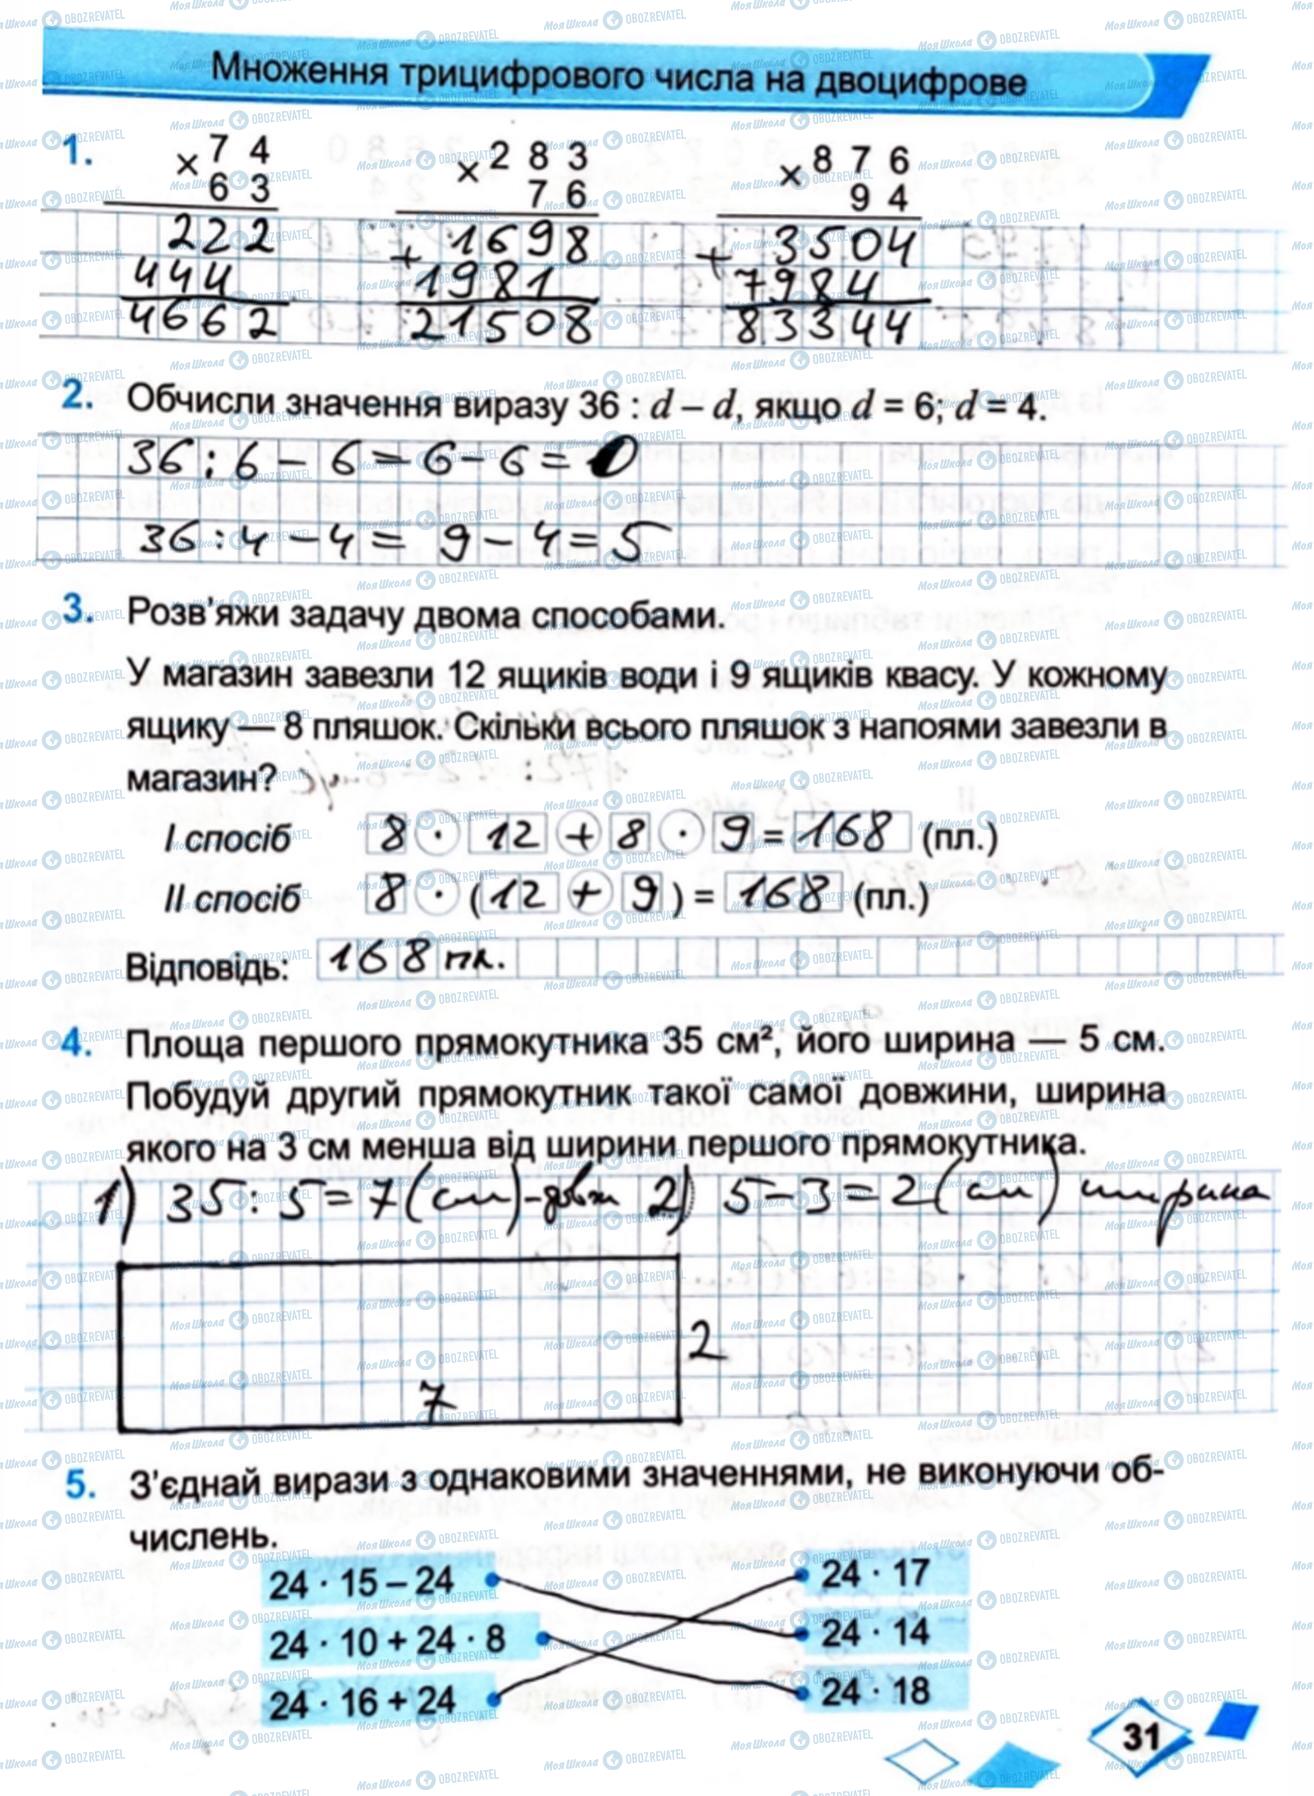 Множення трицифрового числа на двоцифрове
1.
× 7 4
6 3
222
444
4662
× 2 8 3
7 6
+ 1698
1981
21508
× 8 7 6
9 4
+ 3504
7984
83344
2. Обчисли значення виразу 36 : d – d, якщо d = 6; d = 4.
36 : 6 – 6 = 6 – 6 = 0
36 : 4 – 4 = 9 – 4 = 5
3. Розв'яжи задачу двома способами.
У магазин завезли 12 ящиків води і 9 ящиків квасу. У кожному
ящику — 8 пляшок. Скільки всього пляшок з напоями завезли в
магазин?
І спосіб 8 · 12 + 8 · 9 = 168 (пл.)
ІІ спосіб 8 · (12 + 9) = 168 (пл.)
Відповідь: 168 пл.
4. Площа першого прямокутника 35 см², його ширина — 5 см.
Побудуй другий прямокутник такої самої довжини, ширина
якого на 3 см менша від ширини першого прямокутника.
1) 35 : 5 = 7 (см) – довж 2) 5 – 3 = 2 (см) ширина
2
7
5. З'єднай вирази з однаковими значеннями, не виконуючи об-
числень.
24 · 15 – 24 24 · 17
24 · 10 + 24 · 8 24 · 14
24 · 16 + 24 24 · 18
31
МояШкола OBOZREVATEL